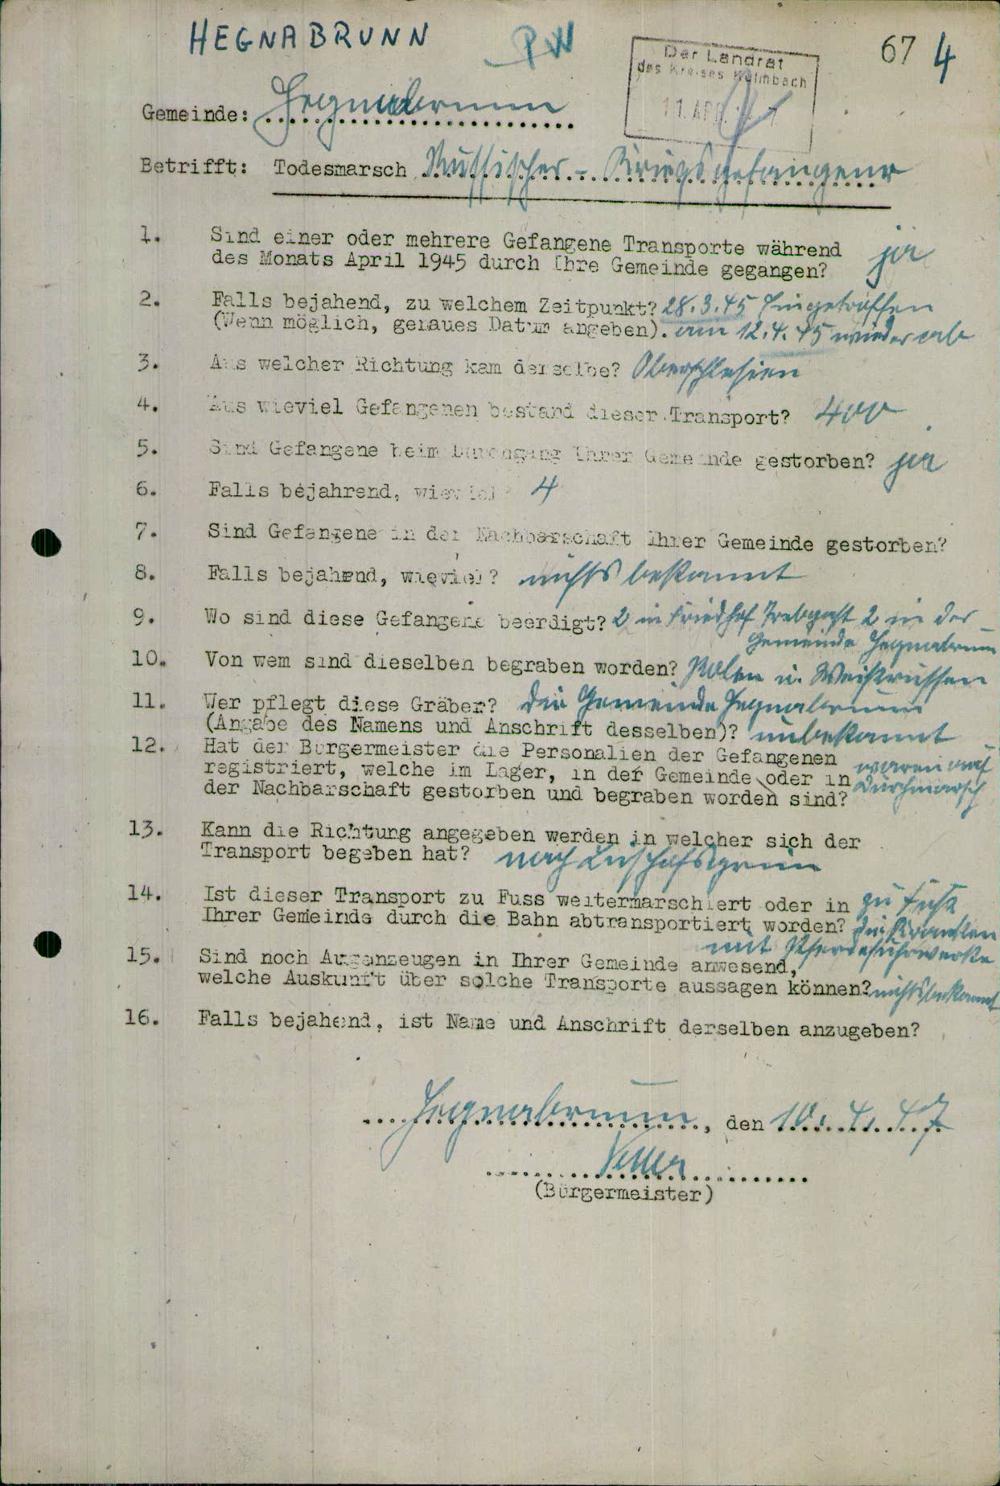 HEGNABRUNN
PW
67 4
Der Landrat
des Kreises Kulmbach
11. APR.
Gemeinde: Hegnabrunn
Betrifft: Todesmarsch Russischer - Kriegsgefangener
1. Sind einer oder mehrere Gefangene Transporte während ja
des Monats April 1945 durch Ihre Gemeinde gegangen?
2. Falls bejahend, zu welchem Zeitpunkt? 28.3.45 Eingetroffen
(Wenn möglich, genaues Datum angeben). am 12.4.45 wieder ab
3. Aus welcher Richtung kam derselbe? Oberschlesien
4. Aus wieviel Gefangenen bestand dieser Transport? 400
5. Sind Gefangene beim Durchgang Ihrer Gemeinde gestorben? ja
6. Falls bejahrend, wieviel? 4
7. Sind Gefangene in der Nachbarschaft Ihrer Gemeinde gestorben?
8. Falls bejahend, wieviel? nichts bekannt
9. Wo sind diese Gefangene beerdigt? 2 in Friedhof Trebgast 2 in der
Gemeinde Hegnabrunn
10. Von wem sind dieselben begraben worden? Polen u. Weißrussen
11. Wer pflegt diese Gräber? Die Gemeinde Hegnabrunn
(Angabe des Namens und Anschrift desselben)? unbekannt
12. Hat der Bürgermeister die Personalien der Gefangenen waren auf
registriert, welche im Lager, in der Gemeinde oder in Durchmarsch
der Nachbarschaft gestorben und begraben worden sind?
13. Kann die Richtung angegeben werden in welcher sich der
Transport begeben hat? nach
14. Ist dieser Transport zu Fuss weitermarschiert oder in zu Fuß
Ihrer Gemeinde durch die Bahn abtransportiert worden? die Kranken
mit Pferdefuhrwerke
15. Sind noch Augenzeugen in Ihrer Gemeinde anwesend,
welche Auskunft über solche Transporte aussagen können? nichts bekannt
16. Falls bejahend, ist Name und Anschrift derselben anzugeben?
Hegnabrunn, den 10.4.47
(Bürgermeister)